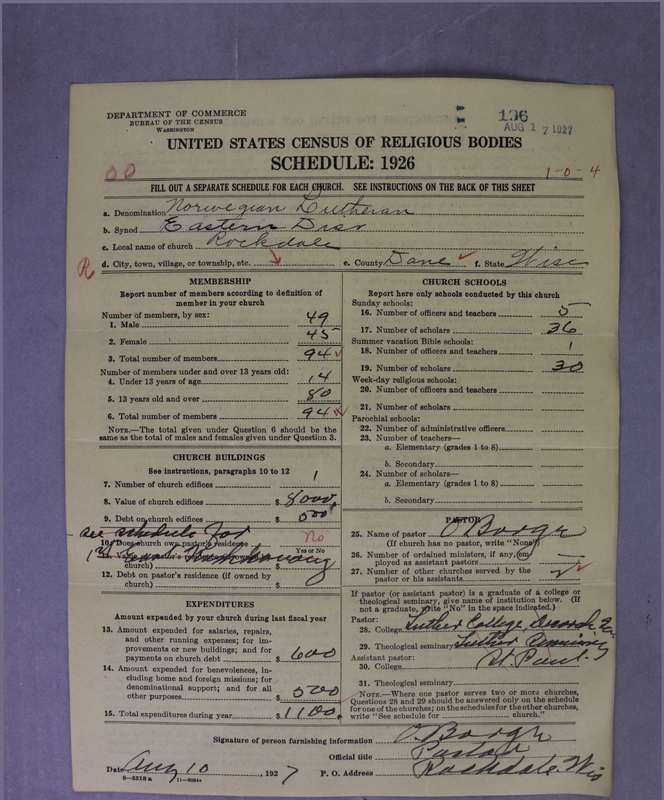 DEPARTMENT OF COMMERCE
BUREAU OF THE CENSUS
WASHINGTON
196
AUG 17 1927
UNITED STATES CENSUS OF RELIGIOUS BODIES
SCHEDULE: 1926
00
1-0-4
FILL OUT A SEPARATE SCHEDULE FOR EACH CHURCH. SEE INSTRUCTIONS ON THE BACK OF THIS SHEET
a. Denomination Norwegian Lutheran
b. Synod Eastern Dist
c. Local name of church Rockdale
R d. City, town, village, or township, etc. e. County Dane f. State Wisc
MEMBERSHIP
Report number of members according to definition of
member in your church
Number of members, by sex:
1. Male 49
2. Female 45
3. Total number of members 94
Number of members under and over 13 years old:
4. Under 13 years of age 14
5. 13 years old and over 80
6. Total number of members 94
NOTE.—The total given under Question 6 should be
the same as the total of males and females given under Question 3.
CHURCH BUILDINGS
See instructions, paragraphs 10 to 12
7. Number of church edifices 1
8. Value of church edifices $ 8000
9. Debt on church edifices $ 500
see schedule for
10. Does church own pastor's residence No
Yes or No
11.
church) $
12. Debt on pastor's residence (if owned by
church) $
EXPENDITURES
Amount expended by your church during last fiscal year
13. Amount expended for salaries, repairs,
and other running expenses; for im-
provements or new buildings; and for
payments on church debt $ 600
14. Amount expended for benevolences, in-
cluding home and foreign missions; for
denominational support; and for all
other purposes $ 500
15. Total expenditures during year $ 1100
CHURCH SCHOOLS
Report here only schools conducted by this church
Sunday schools:
16. Number of officers and teachers 5
17. Number of scholars 36
Summer vacation Bible schools:
18. Number of officers and teachers 1
19. Number of scholars 30
Week-day religious schools:
20. Number of officers and teachers
21. Number of scholars
Parochial schools:
22. Number of administrative officers
23. Number of teachers—
a. Elementary (grades 1 to 8)
b. Secondary
24. Number of scholars—
a. Elementary (grades 1 to 8)
b. Secondary
PASTOR
25. Name of pastor O Borge
(If church has no pastor, write "None")
26. Number of ordained ministers, if any, em-
ployed as assistant pastors
27. Number of other churches served by the
pastor or his assistants 2
If pastor (or assistant pastor) is a graduate of a college or
theological seminary, give name of institution below. (If
not a graduate, write "No" in the space indicated.)
Pastor:
28. College Luther College, Decorah Ia
29. Theological seminary Luther Seminary
Assistant pastor: St Paul.
30. College
31. Theological seminary
NOTE.—Where one pastor serves two or more churches,
Questions 28 and 29 should be answered only on the schedule
for one of the churches; on the schedules for the other churches,
write "See schedule for church."
Signature of person furnishing information O Borge
Official title Pastor
Date Aug 10, 1927 P. O. Address Rockdale, Wis
8-5518 a